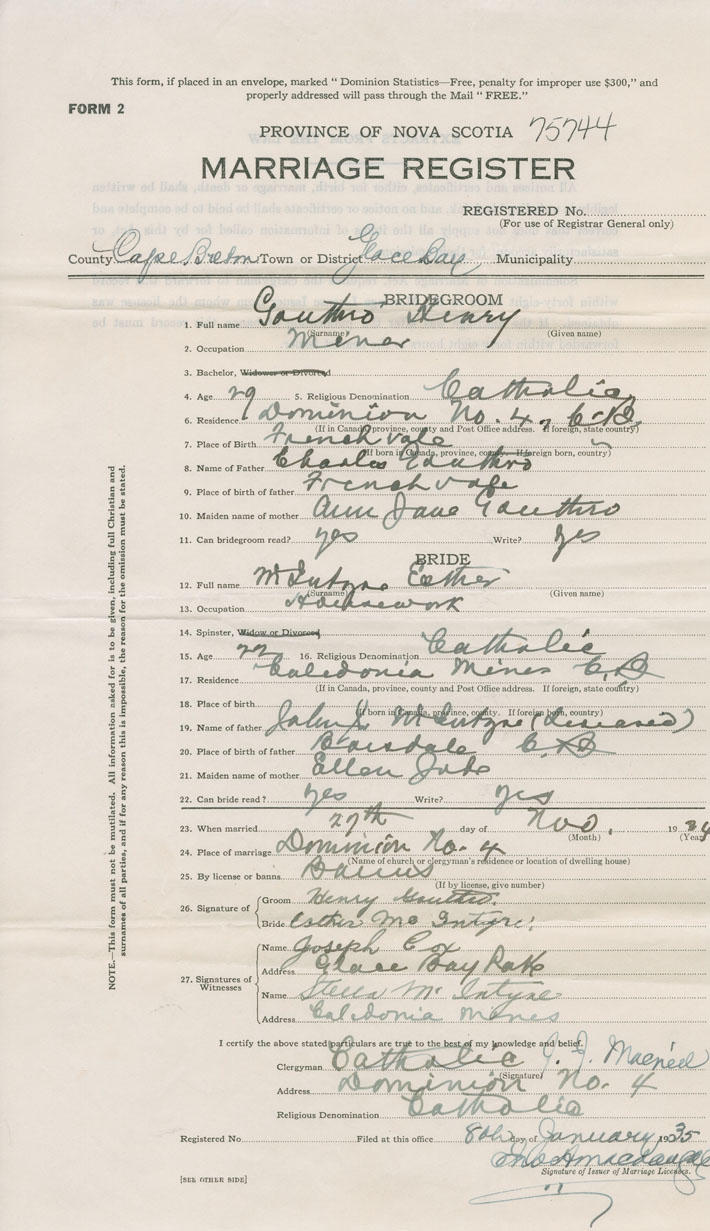 This form, if placed in an envelope, marked " Dominion Statistics—Free, penalty for improper use $300," and
properly addressed will pass through the Mail " FREE."
FORM 2
PROVINCE OF NOVA SCOTIA 75744
MARRIAGE REGISTER
REGISTERED No.
(For use of Registrar General only)
County Cape Breton Town or District Glace Bay Municipality
BRIDEGROOM
1. Full name Gouthro Henry
(Surname) (Given name)
2. Occupation Miner
3. Bachelor, Widower or Divorced
4. Age 29 5. Religious Denomination Catholic
6. Residence Dominion No. 4, C.B.
(If in Canada, province, county and Post Office address. If foreign, state country)
7. Place of Birth French Vale
(If born in Canada, province, county. If foreign born, country)
8. Name of Father Charles Gouthro
9. Place of birth of father French Vale
10. Maiden name of mother Ann Jane Gouthro
11. Can bridegroom read? yes Write? yes
BRIDE
12. Full name McIntyre Esther
(Surname) (Given name)
13. Occupation Housework
14. Spinster, Widow or Divorced
15. Age 22 16. Religious Denomination Catholic
17. Residence Caledonia Mines C.B
(If in Canada, province, county and Post Office address. If foreign, state country)
18. Place of birth
(If born in Canada, province, county. If foreign born, country)
19. Name of father John J. McIntyre (Deceased)
20. Place of birth of father Boisdale C.B
21. Maiden name of mother Ellen
22. Can bride read? yes Write? yes
23. When married 27th day of Nov. 1934
(Month) (Year)
24. Place of marriage Dominion No. 4
(Name of church or clergyman's residence or location of dwelling house)
25. By license or banns Banns
(If by license, give number)
26. Signature of
Groom Henry Gouthro.
Bride Esther Mc Intyre.
27. Signatures of Witnesses
Name Joseph Cox
Address Glace Bay
Name Stella McIntyre
Address Caledonia Mines
I certify the above stated particulars are true to the best of my knowledge and belief.
Clergyman Catholic J. J. Macneil
(Signature)
Address Dominion No. 4
Religious Denomination Catholic
Registered No. Filed at this office 8th day of January, 1935
Signature of Issuer of Marriage Licenses.
[SEE OTHER SIDE]
NOTE.—This form must not be mutilated. All information asked for is to be given, including full Christian and
surnames of all parties, and if for any reason this is impossible, the reason for the omission must be stated.